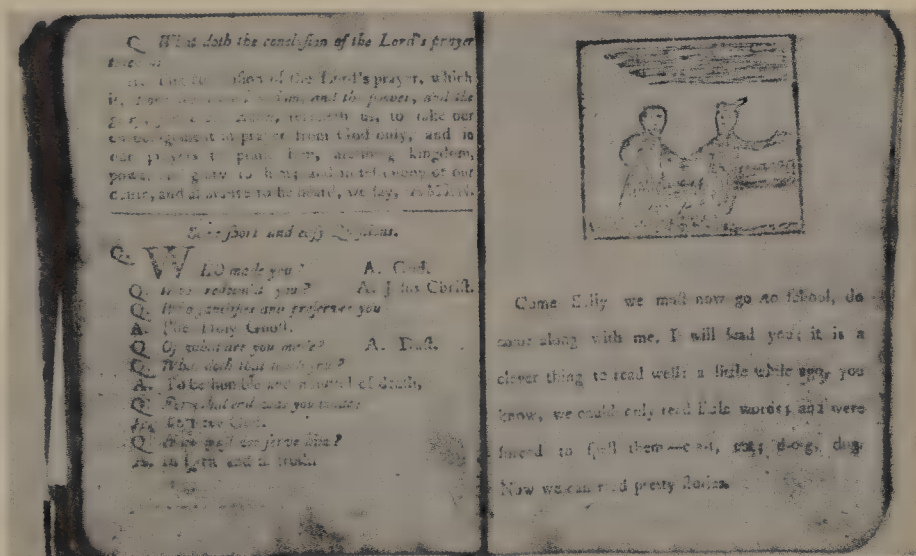 Q. What doth the conclusion of the Lord's prayer
of the Lord's prayer, which
is, and the power, and the
us, to take our
in prayer from God only, and in
our prayers to him, kingdom,
power and glory to him; and in testimony of our
desire, and to be heard, we say, AMEN.
Some short and easy Questions.
Q. WHO made you? A. God.
Q. Who redeemed you? A. Jesus Christ.
Q. Who sanctifies and preserves you
A. The Holy Ghost.
Q. Of what are you made? A. Dust.
Q. What doth that teach you?
A. To be humble and mindful of death.
Q. For what end was you
A. God.
Q. must we serve him?
A. In and in truth.
Come Sally we must now go to school, do
come along with me, I will lead you; it is a
clever thing to read well; a little while ago, you
know, we could only read little words; and were
forced to spell them—c-at, cat; d-og, dog.
Now we can read pretty stories.